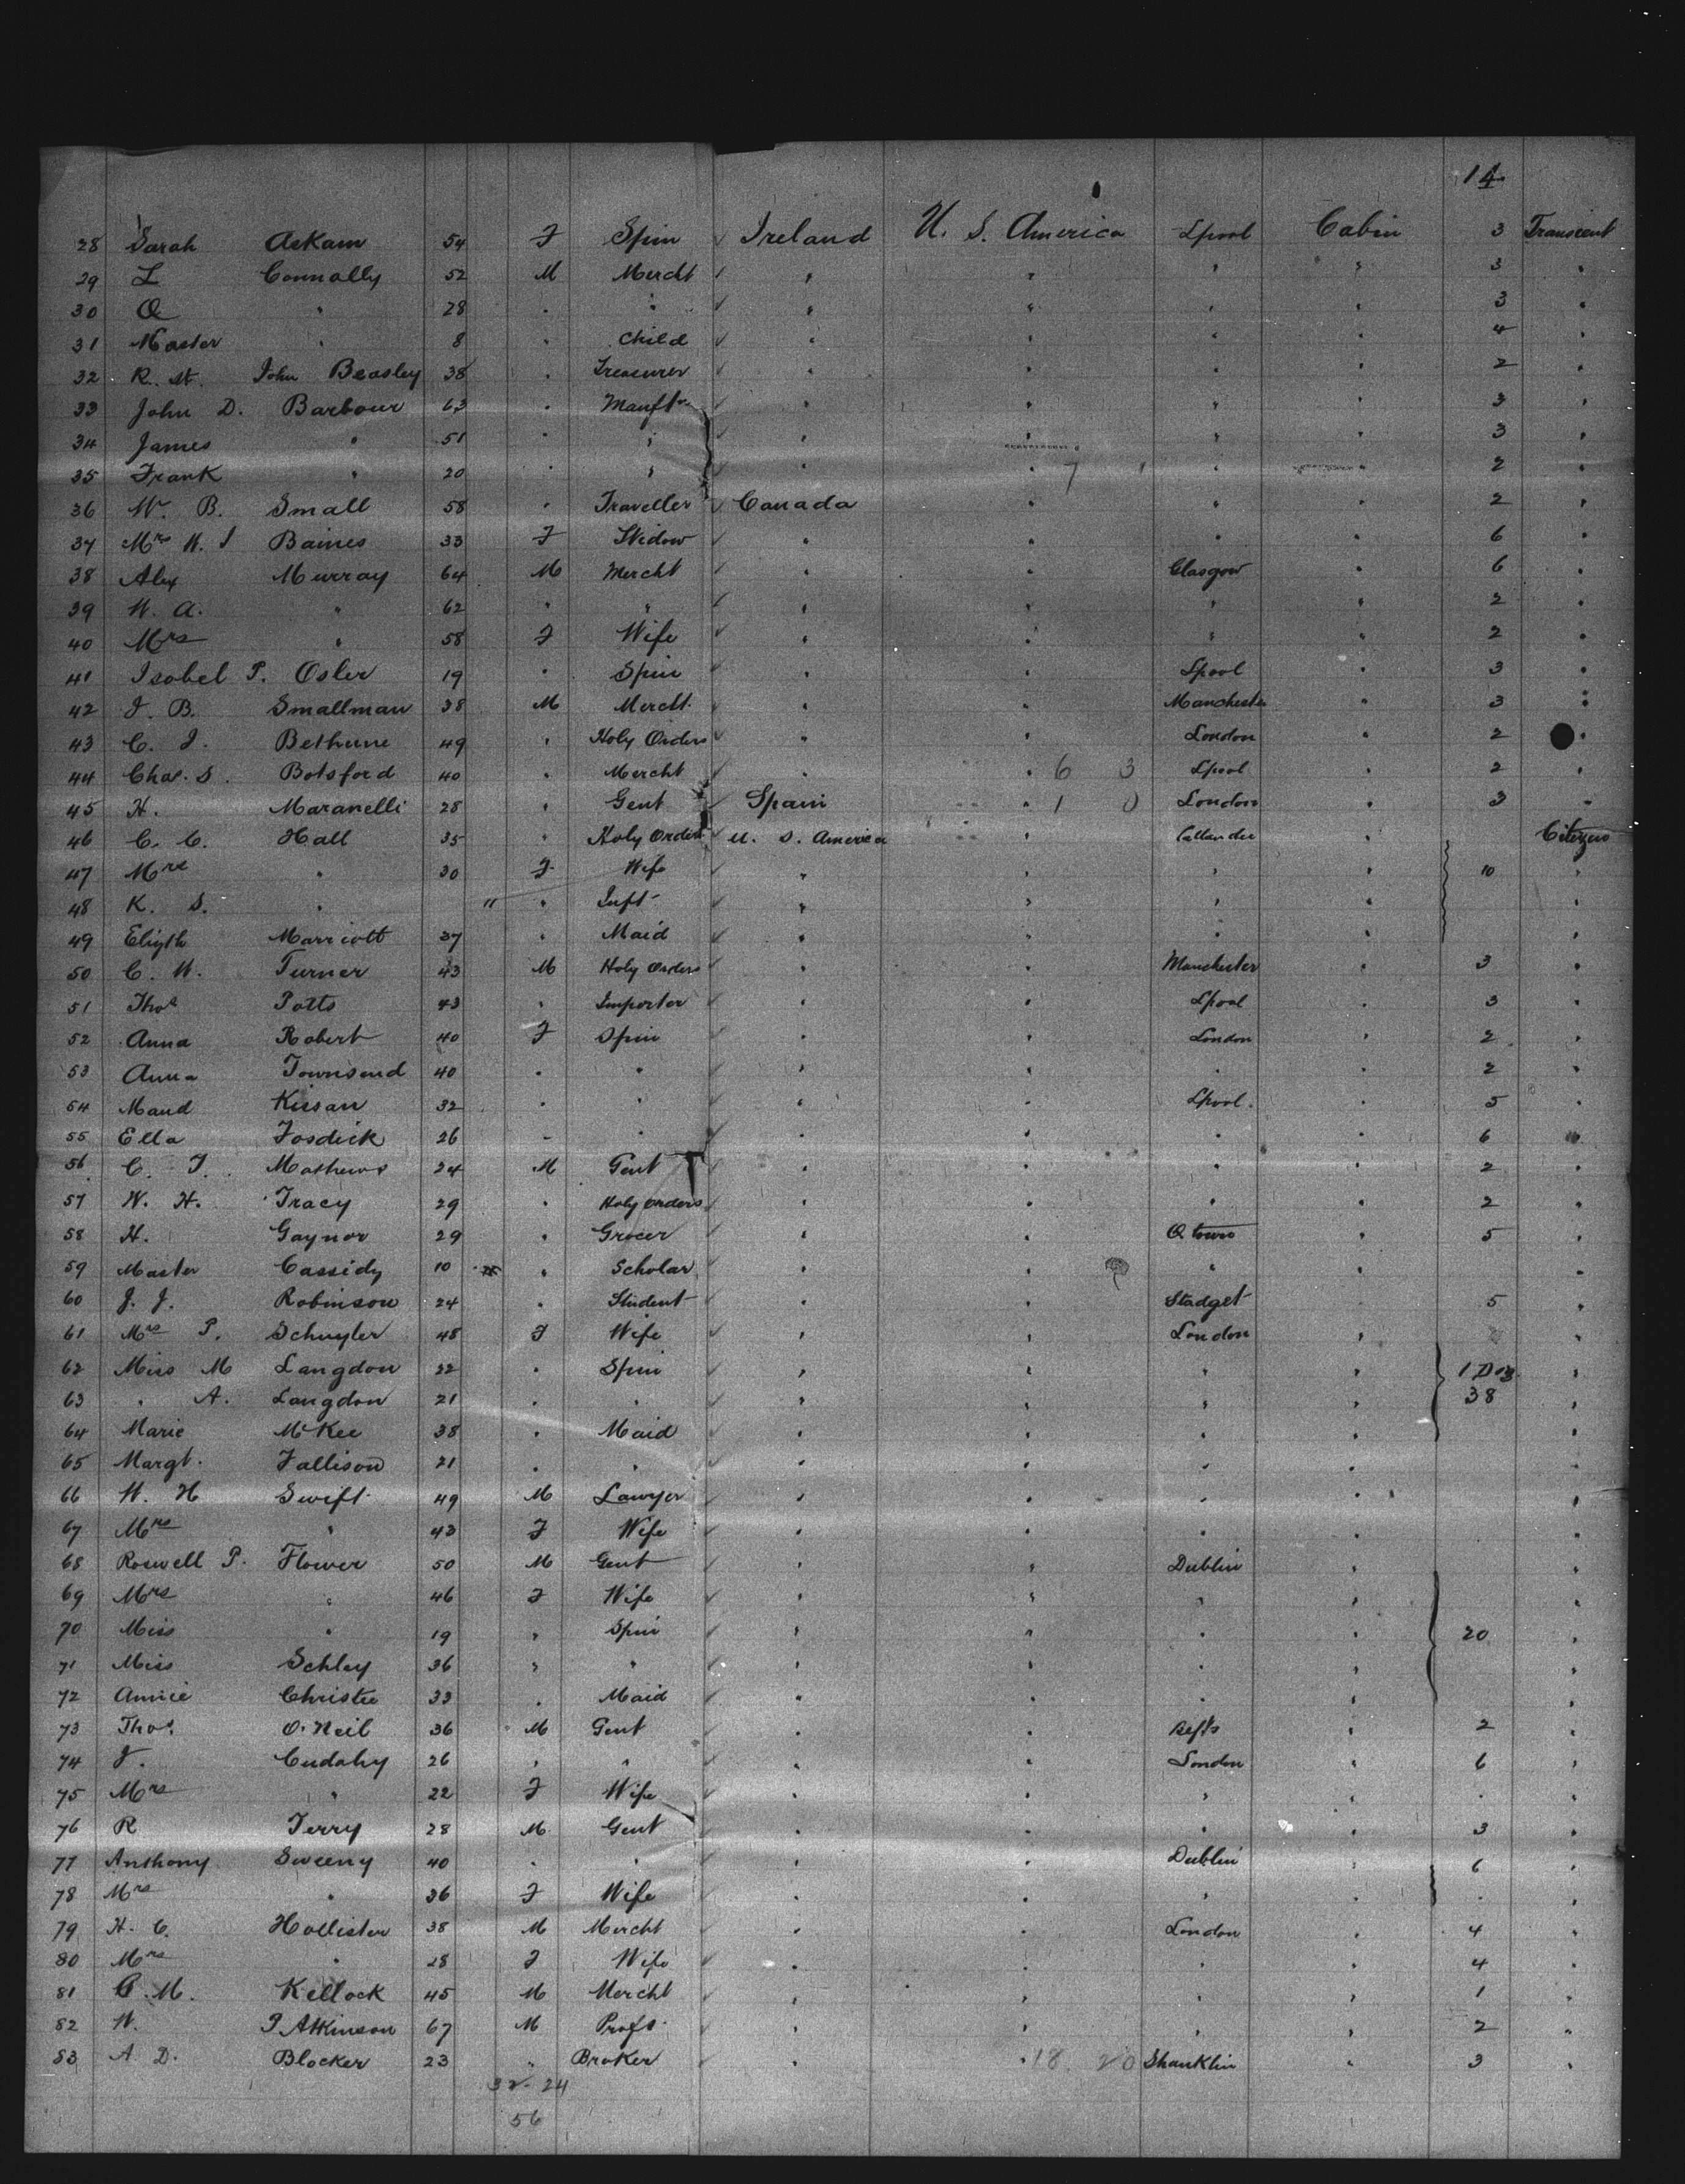 14
28 Sarah Askam 54 F Spin ✓ Ireland U. S. America Lpool Cabin 3 Transcent
29 L Connolly 52 M Mercht ✓ " " " " 3 "
30 O " 28 " " ✓ " " " " 3 "
31 Master " 8 " Child ✓ " " " " 4 "
32 R. St. John Beasley 38 " Treasurer ✓ " " " " 2 "
33 John D. Barbour 63 " Manftr ✓ " " " " 3 "
34 James " 51 " " ✓ " " " " 3 "
35 Frank " 20 " " ✓ " " 7 1 " " 2 "
36 W. B. Small 58 " Traveller ✓ Canada " " " 2 "
37 Mrs W. J Baines 33 F Widow ✓ " " " " 6 "
38 Alex Murray 64 M Mercht ✓ " " Glasgow " 6 "
39 W. A. " 62 " " ✓ " " " " 2 "
40 Mrs " 58 F Wife ✓ " " " " 2 "
41 Isobel P. Osler 19 " Spin ✓ " " Lpool " 3 "
42 J. B. Smallman 38 M Mercht. ✓ " " Manchester " 3 "
43 C. J. Bethune 49 " Holy Orders ✓ " " London " 2 "
44 Chas. S. Botsford 40 " Mercht ✓ " " 6 3 Lpool " 2 "
45 H. Maranelli 28 " Gent ✓ Spain " 1 0 London " 3 "
46 C. C. Hall 35 " Holy Orders ✓ U. S. America " Callander Citizens
47 Mrs " 30 F Wife ✓ " " " " 10 "
48 K. S. " " " Inft ✓ " " " " "
49 Elizth Marriott 37 " Maid ✓ " " " " "
50 C. W. Turner 43 M Holy Orders ✓ " " Manchester " 3 "
51 Thos Potts 43 " Importer ✓ " " Lpool " 3 "
52 Anna Robert 40 F Spin ✓ " " London " 2 "
53 Anna Townsend 40 " " ✓ " " " " 2 "
54 Maud Kissan 32 " " ✓ " " Lpool. " 5 "
55 Ella Fosdick 26 " " ✓ " " " " 6 "
56 C. T. Mathews 24 M Gent ✓ " " " " 2 "
57 W. H. Tracy 29 " Holy orders ✓ " " " " 2 "
58 H. Gaynor 29 " Grocer ✓ " " Q town " 5 "
59 Master Cassidy 10 " Scholar ✓ " " " " "
60 J. J. Robinson 24 " Student ✓ " " " 5 "
61 Mrs P. Schuyler 48 F Wife ✓ " " London " "
62 Miss M Langdon 22 " Spin ✓ " " " " 1 Dog "
63 " A. Langdon 21 " " ✓ " " " " 38 "
64 Marie McKee 38 " Maid ✓ " " " " "
65 Margt. Fallison 21 " " ✓ " " " " "
66 W. H Swift 49 M Lawyer ✓ " " " " "
67 Mrs " 43 F Wife ✓ " " " " "
68 Roswell P. Flower 50 M Gent ✓ " " Dublin " "
69 Mrs " 46 F Wife ✓ " " " " "
70 Miss " 19 " Spin ✓ " " " " 20 "
71 Miss Schley 36 " " ✓ " " " " "
72 Annie Christie 33 " Maid ✓ " " " " "
73 Thos. O'Neil 36 M Gent ✓ " " " 2 "
74 J. Cudahy 26 " " ✓ " " London " 6 "
75 Mrs " 22 F Wife ✓ " " " " " "
76 R Terry 28 M Gent ✓ " " " " 3 "
77 Anthony Sweeny 40 " " ✓ " " Dublin " 6 "
78 Mrs " 36 F Wife ✓ " " " " " "
79 H. C. Hollister 38 M Mercht ✓ " " London " 4 "
80 Mrs " 28 F Wife ✓ " " " " 4 "
81 C. M. Kellock 45 M Mercht ✓ " " " " 1 "
82 W. P Atkinson 67 M Profs. ✓ " " " " 2 "
83 A. D. Blocker 23 " Broker ✓ " " 18. 20 Shanklin " 3 "
32 - 24
56